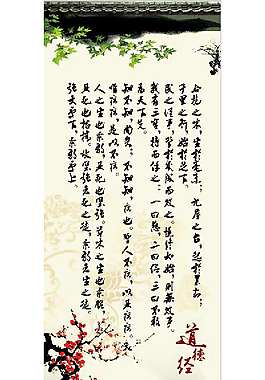 合抱之木，生於毫末；九层之台，起於累土；
千里之行，始於足下。
民之从事，常於几成而败之。慎终如始，则无败事。
我有三宝，持而保之：一曰慈，二曰俭，三曰不敢
为天下先。
知不知，尚矣；不知知，病也。圣人不病，以其病病。夫
惟病病，是以不病。
人之生也柔弱，其死也坚强。草木之生也柔脆，
其死也枯槁。故坚强者死之徒，柔弱者生之徒。
强大处下，柔弱处上。
道德经